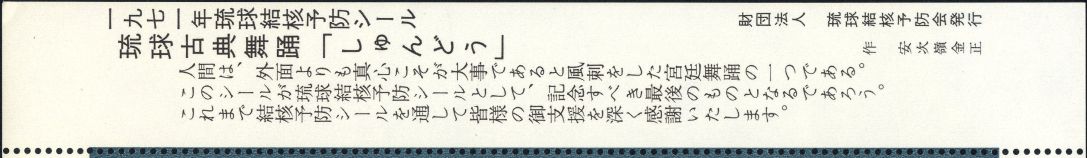 一九七一年琉球結核予防シール
琉球古典舞踊「しゅんどう」
人間は、外面よりも真心こそが大事であると風刺をした宮廷舞踊の一つである。
このシールが琉球結核予防シールとして、記念すべき最後のものとなるであろう。
これまで結核予防シールを通して皆様の御支援を深く感謝いたします。
財団法人　琉球結核予防会発行
作　安次嶺金正